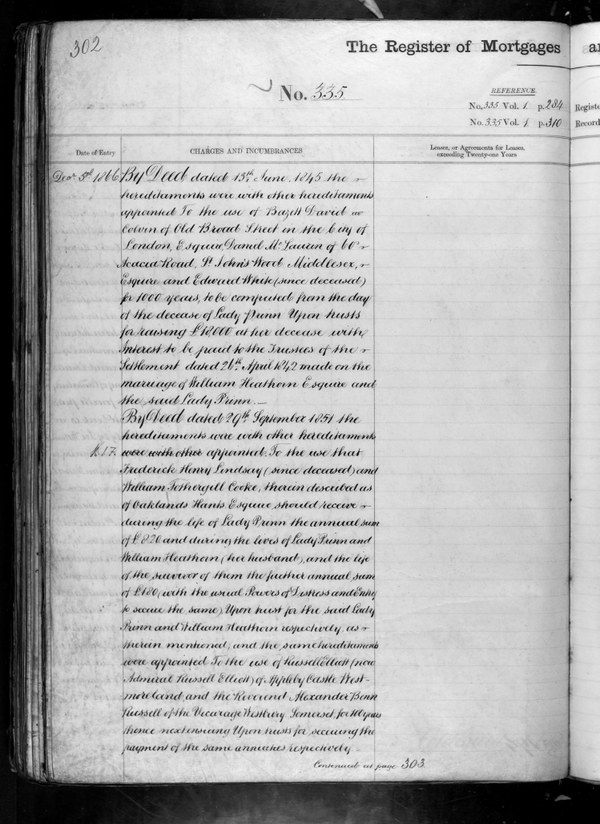 302
The Register of Mortgages
an
No. 335
REFERENCE.
No. 335 Vol. 1 p. 234
Registe
No. 335 Vol. 1. p. 310
Record
Date of Entry
CHARGES AND INCUMBRANCES
Leases, or Agreements for Leases,
exceeding Twenty-one Years
Decr 5th 1866 By Deed dated 13th June 1845 the
hereditaments were with other hereditaments
appointed To the use of Bazett David
Colvin of Old Broad Street in the City of
London, Esquire Daniel McLauren of 60
Acacia Road, St John's Wood Middlesex,
Esquire and Edward White (since deceased)
for 1000 years, to be computed from the day
of the decease of Lady Prinn Upon trusts
for raising £12000 at her decease with
Interest to be paid to the Trustees of the
Settlement dated 26th April 1842 made on the
marriage of William Heathorn Esquire and
the said Lady Prinn.
By Deed dated 29th September 1851 the
hereditaments were with other hereditaments
were with other appointed To the use that
Frederick Henry Lindsay (since deceased) and
William Fothergill Cooke, therein described as
of Oaklands Hants Esquire, should receive
during the life of Lady Prinn the annual sum
of £820 and during the lives of Lady Prinn and
William Heathorn (her husband), and the life
of the survivor of them the further annual sum
of £180, with the usual Powers of Distress and Entry
to secure the same) Upon trust for the said Lady
Prinn and William Heathorn respectively, as
therein mentioned, and the same hereditaments
were appointed To the use of Russell Elliott (now
Admiral Russell Elliott) of Appleby Castle West-
moreland and the Reverend Alexander Benn
Russell of the Vicarage Westbury Somerset, for 100 years
thence next ensuing Upon trusts for securing the
payment of the same annuities respectively
Continued at page 303